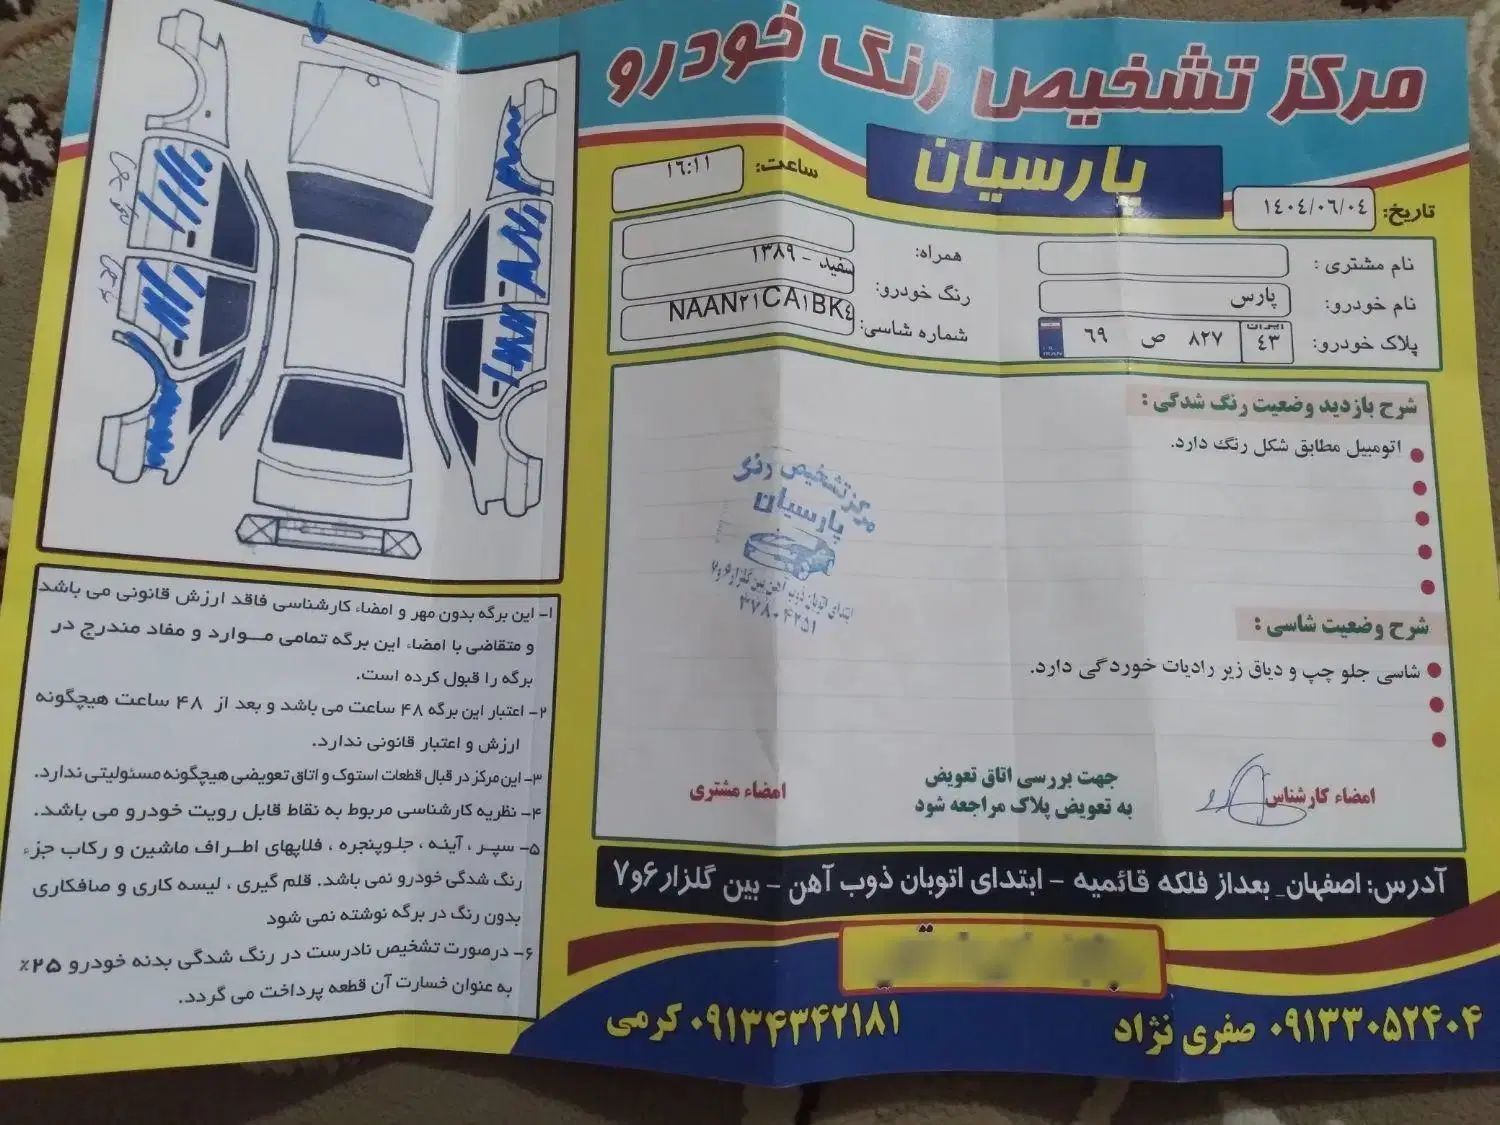 مرکز تشخیص رنگ خودرو
پارسیان
تاریخ: ۱۴۰۴/۰۶/۰۴
ساعت: ۱۶:۱۱
نام مشتری :
همراه:
نام خودرو: پارس
رنگ خودرو: سفید - ۱۳۸۹
پلاک خودرو: ایران ۴۳ ۸۲۷ ص ۶۹
شماره شاسی: NAAN۲۱CA۱BK٤
شرح بازدید وضعیت رنگ شدگی :
اتومبیل مطابق شکل رنگ دارد.
مرکز تشخیص رنگ
پارسیان
ابتدای اتوبان ذوب آهن بین گلزار ۶و۷
۳۷۸۰۴۲۵۱
شرح وضعیت شاسی :
شاسی جلو چپ و دیاق زیر رادیات خوردگی دارد.
امضاء کارشناس
جهت بررسی اتاق تعویض
به تعویض پلاک مراجعه شود
امضاء مشتری
آدرس: اصفهان_ بعداز فلکه قائمیه - ابتدای اتوبان ذوب آهن - بین گلزار ۶و۷
۰۹۱۳۳۰۵۲۴۰۴ صفری نژاد
۰۹۱۳۴۳۴۲۱۸۱ کرمی
۱- این برگه بدون مهر و امضاء کارشناسی فاقد ارزش قانونی می باشد
و متقاضی با امضاء این برگه تمامی موارد و مفاد مندرج در
برگه را قبول کرده است.
۲- اعتبار این برگه ۴۸ ساعت می باشد و بعد از ۴۸ ساعت هیچگونه
ارزش و اعتبار قانونی ندارد.
۳- این مرکز در قبال قطعات استوک و اتاق تعویضی هیچگونه مسئولیتی ندارد.
۴- نظریه کارشناسی مربوط به نقاط قابل رویت خودرو می باشد.
۵- سپر ، آینه ، جلوپنجره ، فلاپهای اطراف ماشین و رکاب جزء
رنگ شدگی خودرو نمی باشد. قلم گیری ، لیسه کاری و صافکاری
بدون رنگ در برگه نوشته نمی شود
۶- درصورت تشخیص نادرست در رنگ شدگی بدنه خودرو ۲۵٪
به عنوان خسارت آن قطعه پرداخت می گردد.